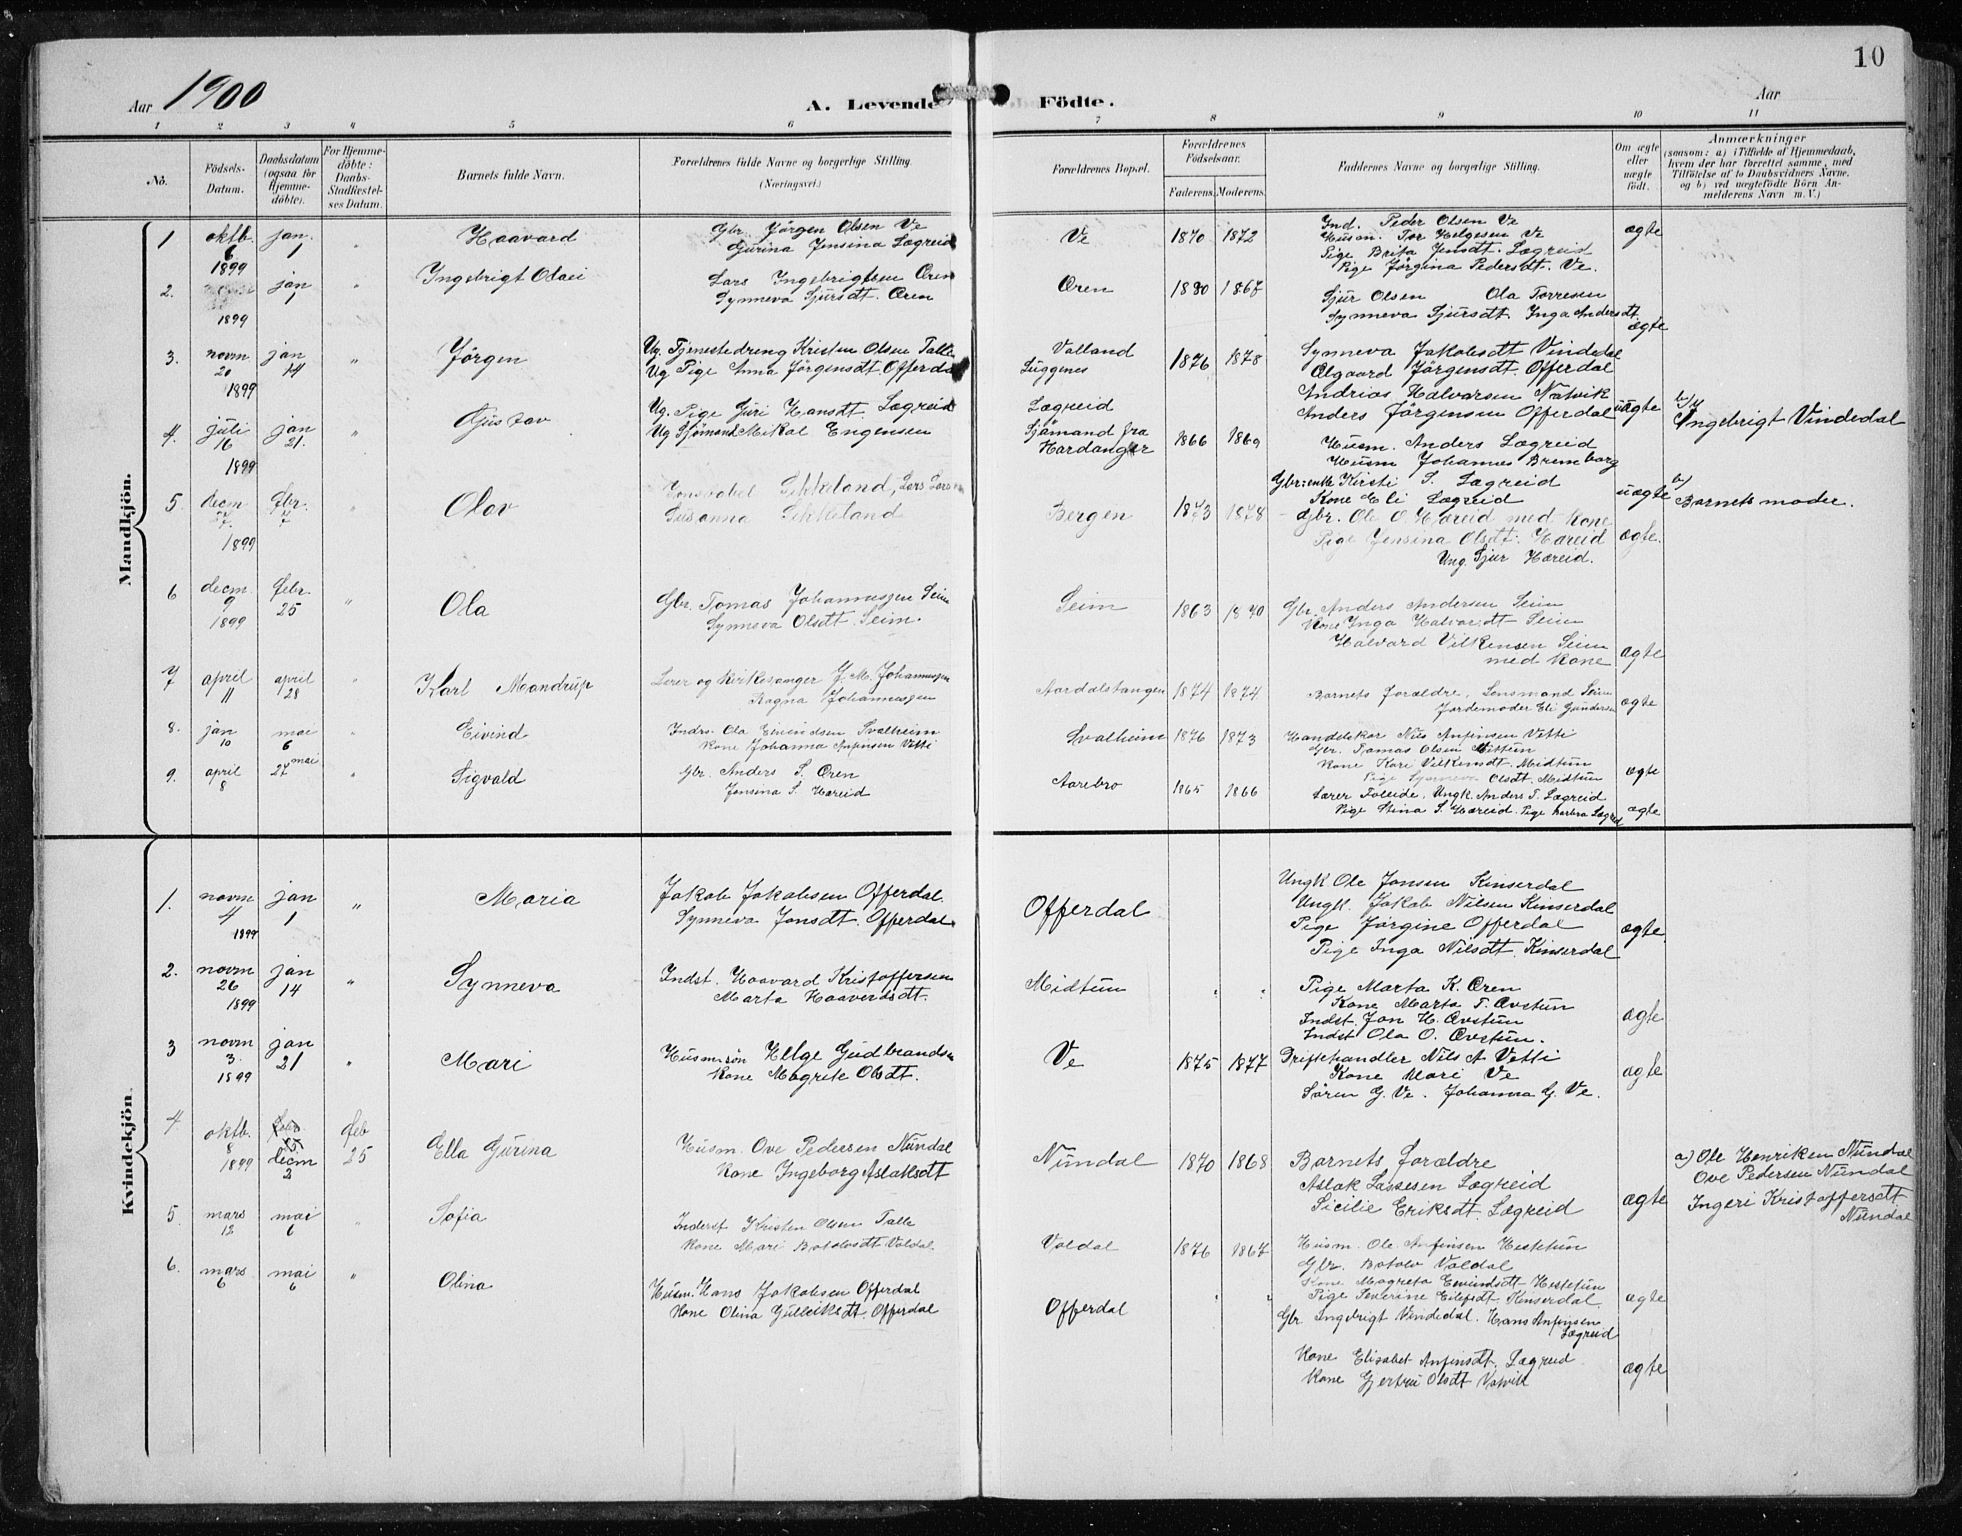 10
Aar 1900
A. Levende Födte.
Aar
1 2 3 4 5 6 7 8 9 10 11
No.
Födsels-Datum.
Daabsdatum (ogsaa for Hjemme-döbte).
For Hjemme-döbte: Daabs-Stadfæstel-ses Datum.
Barnets fulde Navn.
Forældrenes fulde Navne og borgerlige Stilling.
(Næringsvei.)
Forældrenes Bopæl.
Forældrenes Födselsaar.
Faderens. Moderens.
Faddernes Navne og borgerlige Stilling.
Om ægte eller uægte födt.
Anmærkninger
(saasom: a) i Tilfælde af Hjemmedaab,
hvem der har forrettet samme, med
Tilföielse af to Daabsvidners Navne,
og b) ved uægtefödte Börn An-
melderens Navn m. V.)
Mandkjön.
1 oktb. 6 1899 jan. 1 " Haavard
Gbr. Jörgen Olsen Ve
Gurina Jensina Lægreid
Ve 1870 1872
Ind. Peder Olsen Ve
Husm. Tor Helgesen Ve
Pige Brita Jensdt. Lægreid
Pige Jörgina Pedersdt. Ve.
ægte
2. 1899 jan 1 " Ingebrigt Olai
Lars Ingebrigtsen Øren
Synneva Sjursdt. Øren
Øren 1880 1867
Sjur Olsen Ola Torresen
Synneva Sjursdt. Inga Andersdt
ægte
3. novm 20 1899 jan 14 " Jörgen
Ug. Tjenestedreng Kristen Olsen Talle
Ug Pige Anna Jörgensdt. Offerdal
Volland
Luggenes
1876 1878
Synneva Jakobsdt Vindedal
Olgaard Jörgensdt. Offerdal
Andrias Halvarsen Natvik
Anders Jörgensen Offerdal
uægte
b/
Ingebrigt Vindedal
4. juli 16 1899 jan 21. " Gustav
Ug. Pige Guri Hansdt. Lægreid
Ug Sjömand Mikal Engensen
Lægreid
Sjömand fra
Hardanger
1866 1869
Husm. Anders Lægreid
Husm Johannes Bremborg
Gbr: enke Kirsti S. Lægreid
Kone Eli Lægreid
uægte
b/
Barnets moder.
5 decm 1899 Febr. 7 " Olav
Lars
Susanna
Bergen 1873 1878
Gbr. Ole O. Hæreid med Kone
Pige Jensina Olsdt. Hæreid
Ung. Sjur Hæreid.
ægte.
6 decm. 9 1899 Febr. 25 " Ola
Gbr. Tomas Johannessen Seim
Synneva Olsdt. Seim.
Seim 1863
Gbr. Anders Andersen Seim
Kone Inga Halvardt Seim
Halvard Vilkensen Seim
med Kone
ægte
7 april 11 april 28 " Karl Mandrup
Lærer og Kirkesanger J. M. Johannessen
Ragna Johannessen
Aardalstangen 1874 1874
Barnets forældre, Lensmand Seim
Jordemoder Eli Gundersen
ægte
8. jan 10 mai 6 " Eivind
Indrs. Ola Eivindsen Svalheim
Kone Johanna Anfinsen Vetti
Svalheim 1876 1873
Handelskar Nils Anfinsen Vetti
Gbr. Tomas Olsen Mittun
Kone Kari Vilkensdt. Midtun
Pige Synneva Olsdt. Midtun
ægte
9. april 8 27 mai " Sigvald
Gbr. Anders S. Øren
Jensina S. Hæreid
Aarebro 1865 1866
Lærer Foleide. Ungk. Anders T. Lægreid
Pige Stina S. Hæreid. Pige Barbra Lægreid
ægte
Kvindekjön.
1. novm 4 1899 jan 1 " Maria
Jakob Jakobsen Offerdal.
Synneva Jonsdt. Offerdal.
Offerdal
Ungk Ole Jonsen Kinserdal
Ungk. Jakob Nilsen Kinserdal
Pige Jörgine Offerdal
Pige Inga Nilsdt. Kinserdal
ægte.
2. novm 26 1899 jan 14 " Synneva
Indst. Haavard Kristoffersen
Marta Haavardsdt.
Midtun " "
Pige Marta K. Øren
Kone Marta T. Øvstun
Indst. Jon H. Øvstun
Indst Ola O. Øvstun.
ægte
3 novm 3. 1899 jan 21 " Mari
Husm.sön Helge Gudbrandsen
Kone Magrete Olsdt.
Ve 1875 1877
Driftehandler Nils A Vetti
Kone Mari Ve
Sören G. Ve. Johanna G. Ve.
ægte
4 oktb. 8 1899 decm 3 Feb 25 Ella Gurina
Husm. Ove Pedersen Nundal
Kone Ingeborg Aslaksdt
Nundal 1870 1868
Barnets forældre
Aslak Lassesen Lægreid
Sicilie Eriksdt. Lægreid
ægte
a) Ole Henriken Nundal
Ove Pedersen Nundal
Ingeri Kristoffersdt.
Nundal
5. mars 12 mai 6 " Sofia
Inderst Kristen Olsen Talle
Kone Mari Botolvsdt Voldal.
Voldal 1876 1867
Husm. Ole Anfinsen Hestetun
Gbr. Botolv Voldal
Kone Magreta Eivindsdt Hestetun
Pige Severine Eilefsdt Kinserdal.
ægte
6. mars 6 mai 6 " Olina
Husm. Hans Jakobsen Offerdal
Kone Olina Gulleiksdt. Offerdal
Offerdal " "
Gbr Ingebrigt Vindedal. Hans Anfinsen
Lægreid
Kone Elisabet Anfinsdt. Lægreid
Kone Gjertru Olsdt Natvik
ægte